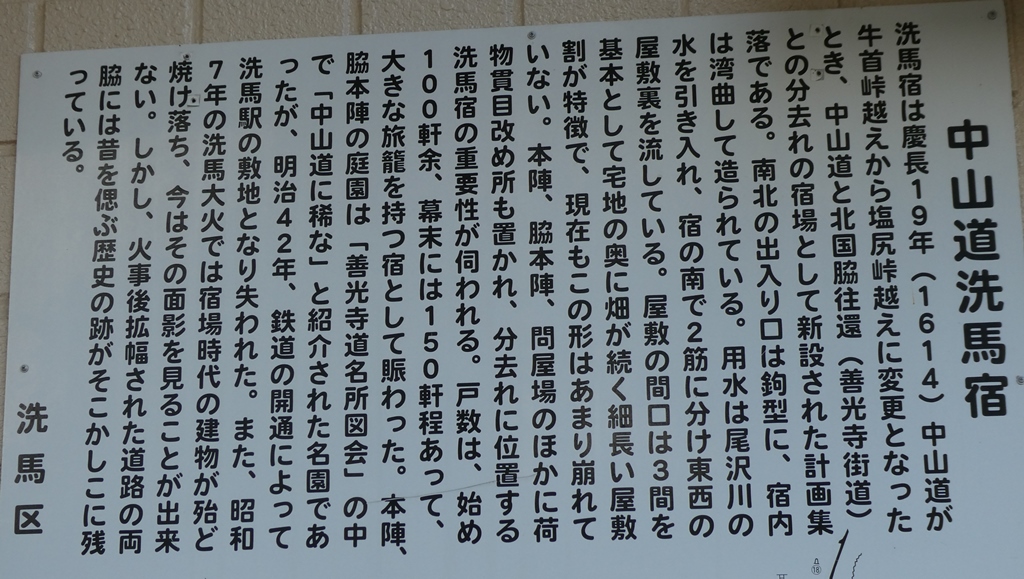 中山道洗馬宿
洗馬宿は慶長19年（1614）中山道が
牛首峠越えから塩尻峠越えに変更となった
とき、中山道と北国脇往還（善光寺街道）
との分去れの宿場として新設された計画集
落である。南北の出入り口は鉤型に、宿内
は湾曲して造られている。用水は尾沢川の
水を引き入れ、宿の南で2筋に分け東西の
屋敷裏を流している。屋敷の間口は3間を
基本として宅地の奥に畑が続く細長い屋敷
割が特徴で、現在もこの形はあまり崩れて
いない。本陣、脇本陣、問屋場のほかに荷
物貫目改め所も置かれ、分去れに位置する
洗馬宿の重要性が伺われる。戸数は、始め
100軒余、幕末には150軒程あって、
大きな旅籠を持つ宿として賑わった。本陣、
脇本陣の庭園は「善光寺道名所図会」の中
で「中山道に稀な」と紹介された名園であ
ったが、明治42年、鉄道の開通によって
洗馬駅の敷地となり失われた。また、昭和
7年の洗馬大火では宿場時代の建物が殆ど
焼け落ち、今はその面影を見ることが出来
ない。しかし、火事後拡幅された道路の両
脇には昔を偲ぶ歴史の跡がそこかしこに残
っている。
洗馬区
⑱